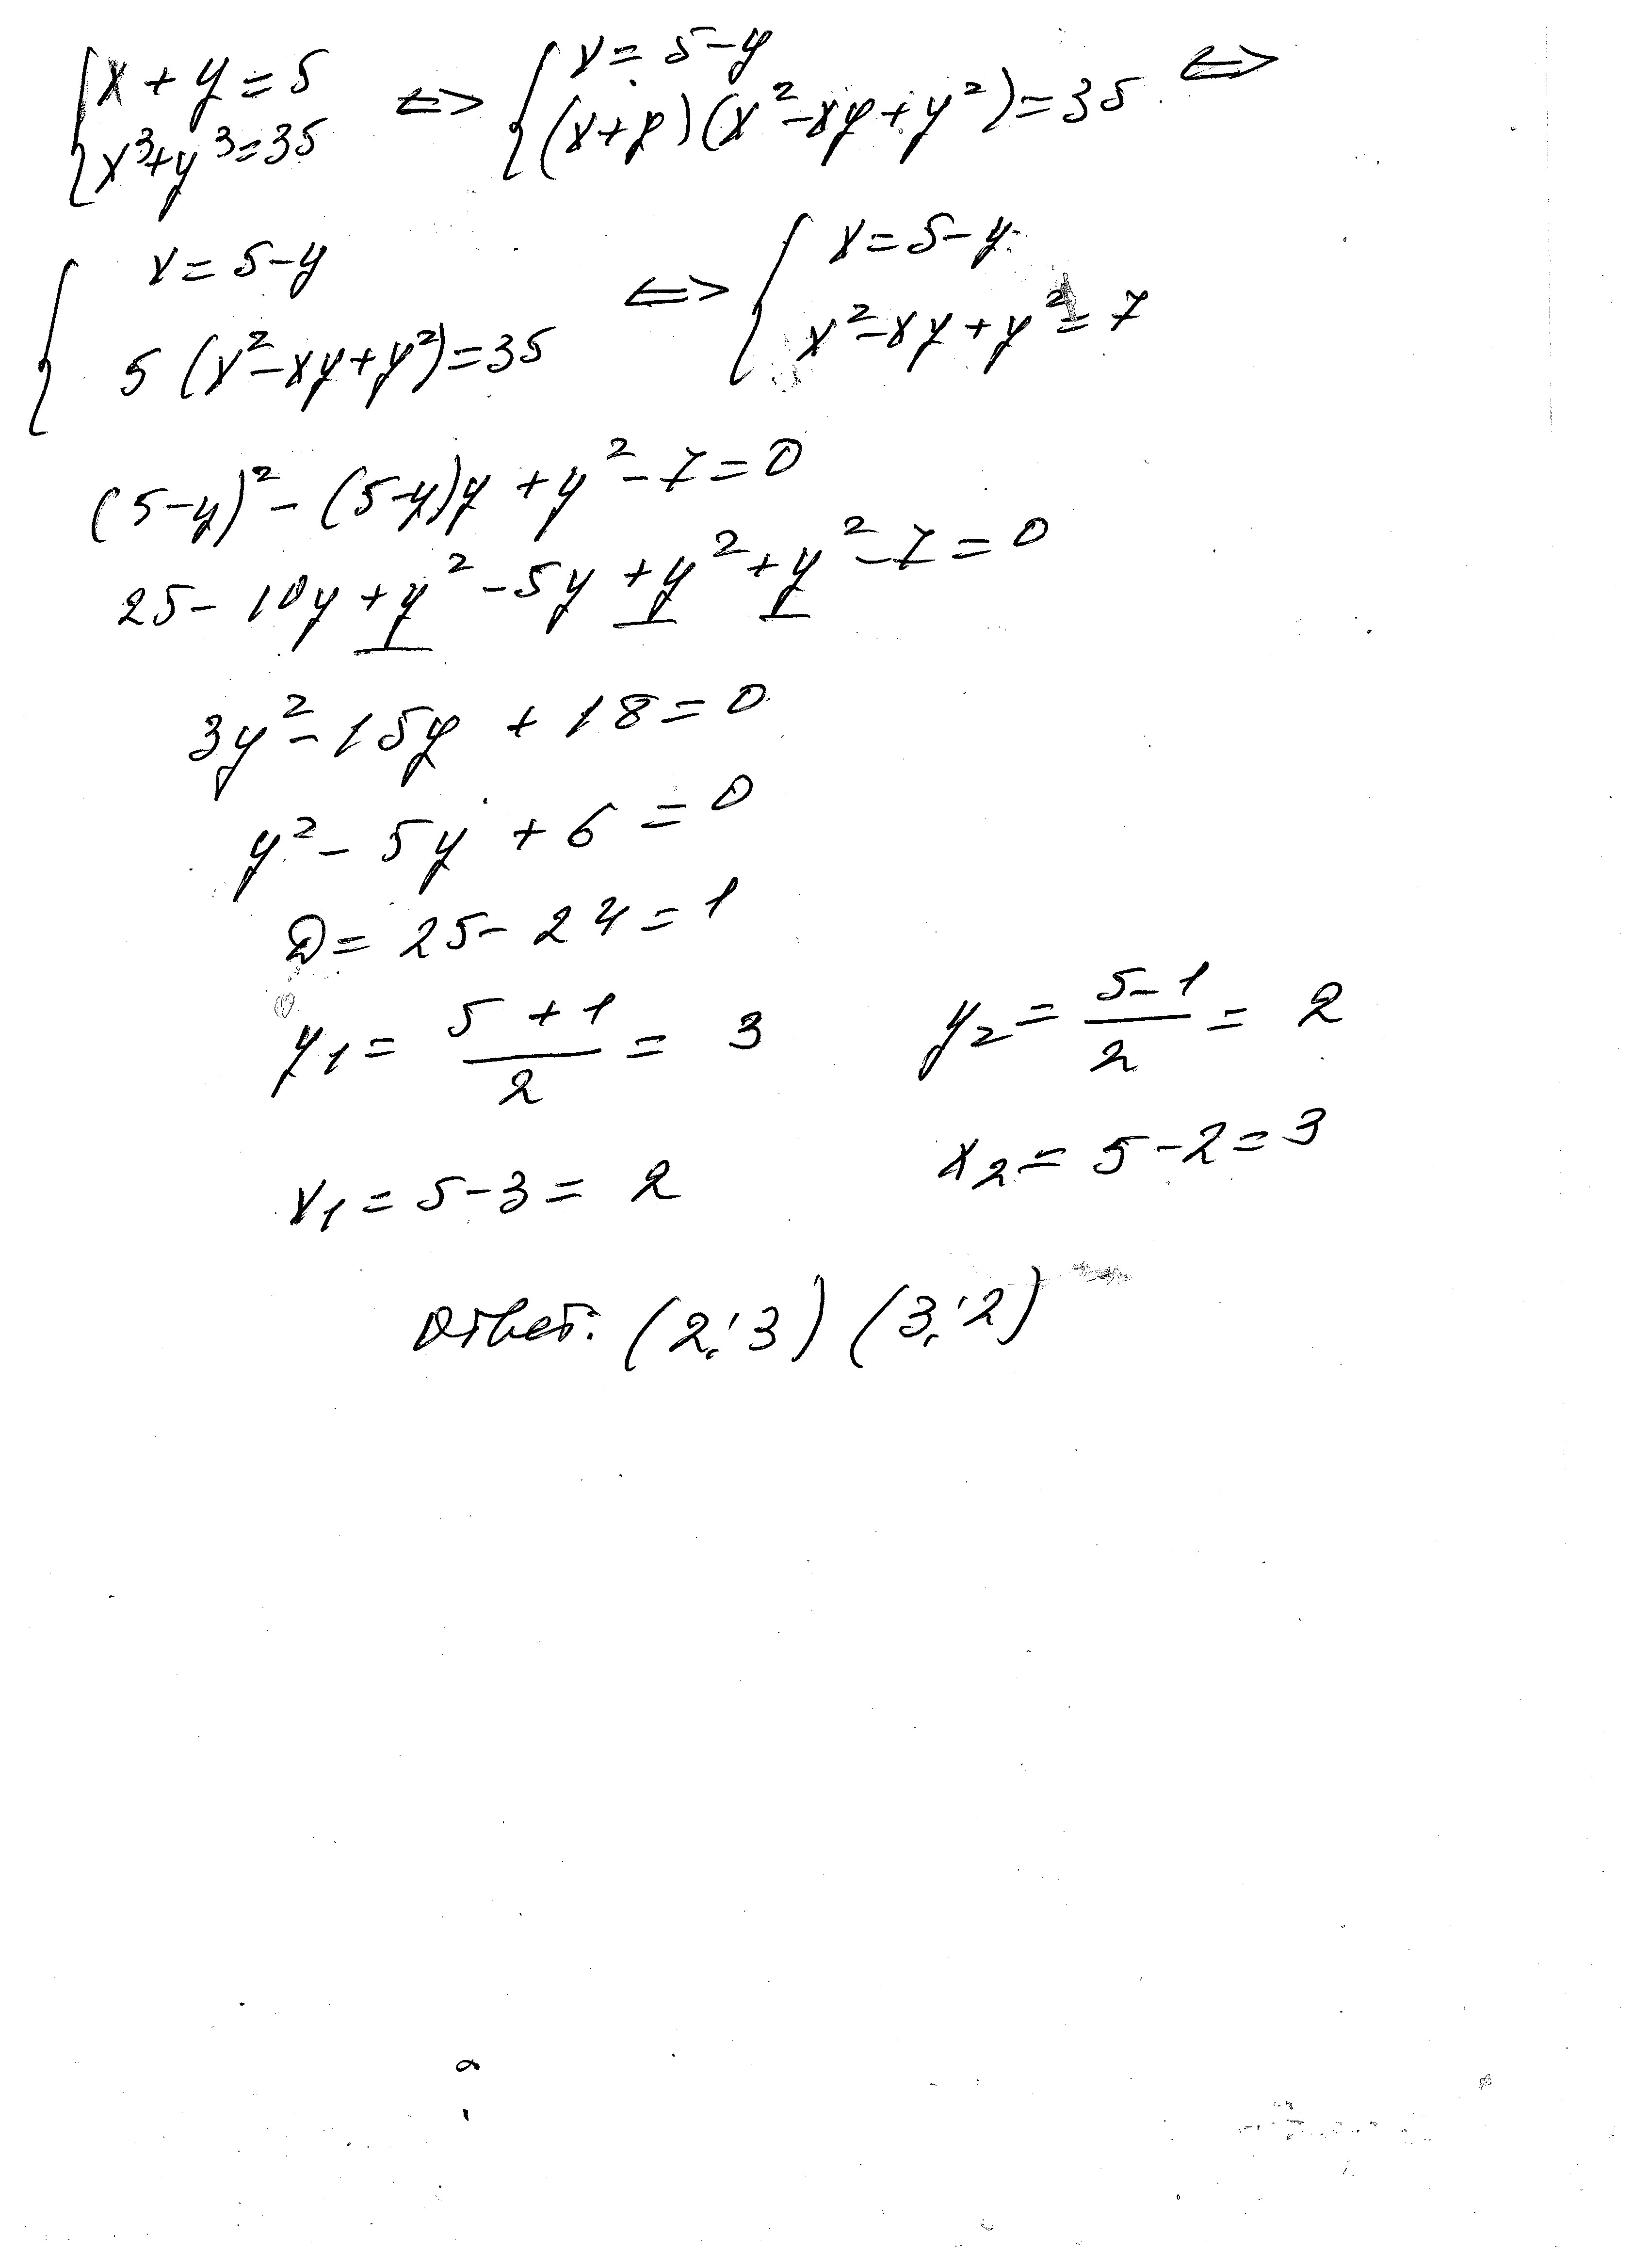 {x + y = 5 <=> {x = 5 - y <=>
{x³ + y³ = 35 {(x + y)(x² - xy + y²) = 35
{x = 5 - y <=> {x = 5 - y
{5 (x² - xy + y²) = 35 {x² - xy + y² = 7
(5 - y)² - (5 - y)y + y² - 7 = 0
25 - 10y + y² - 5y + y² + y² - 7 = 0
3y² - 15y + 18 = 0
y² - 5y + 6 = 0
D = 25 - 24 = 1
y₁ = (5 + 1)/2 = 3 y₂ = (5 - 1)/2 = 2
x₁ = 5 - 3 = 2 x₂ = 5 - 2 = 3
Ответ: (2; 3) (3; 2)